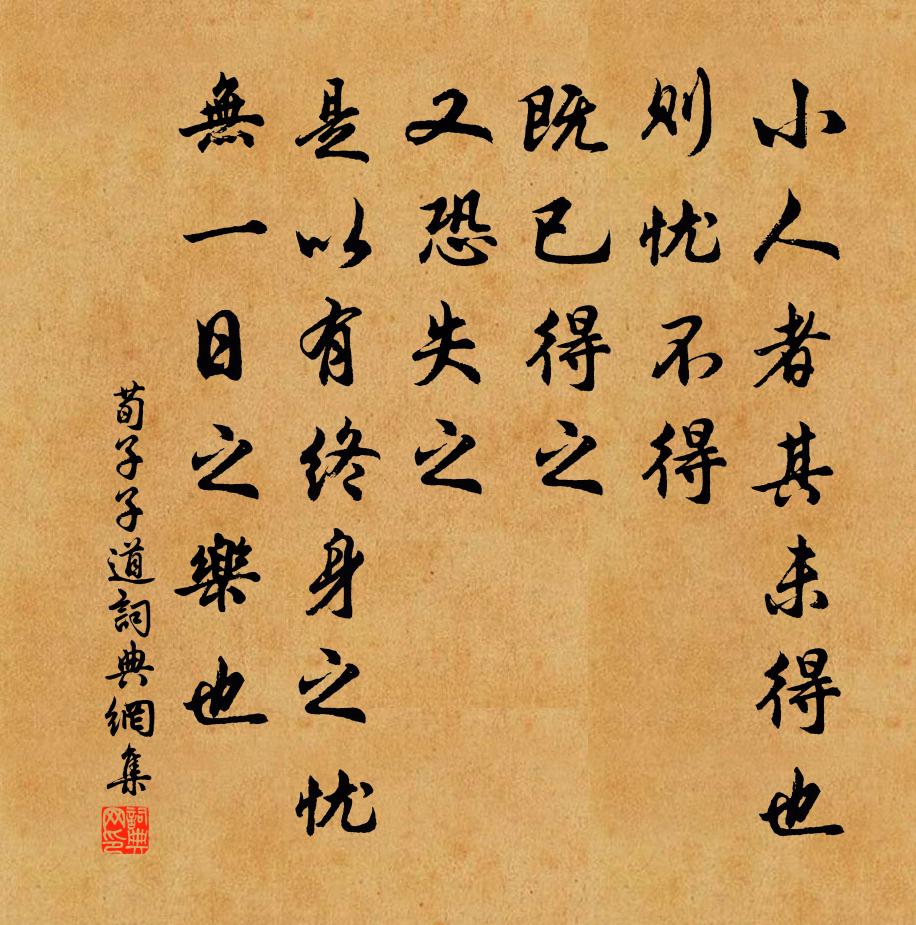 小人者其未得也
则忧不得
既已得之
又恐失之
是以有终身之忧
無一日之樂也
荀子子道詞典網集
詞典网印